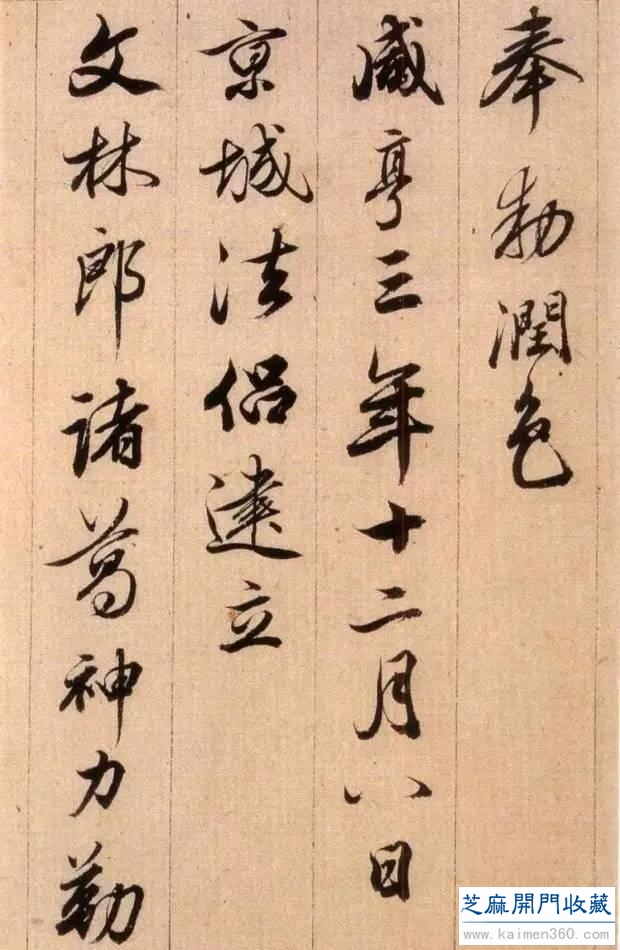 奉勅潤色
咸亨三年十二月八日
京城法侶建立
文林郎諸葛神力勒
芝麻開門收藏
www.kaimen360.com